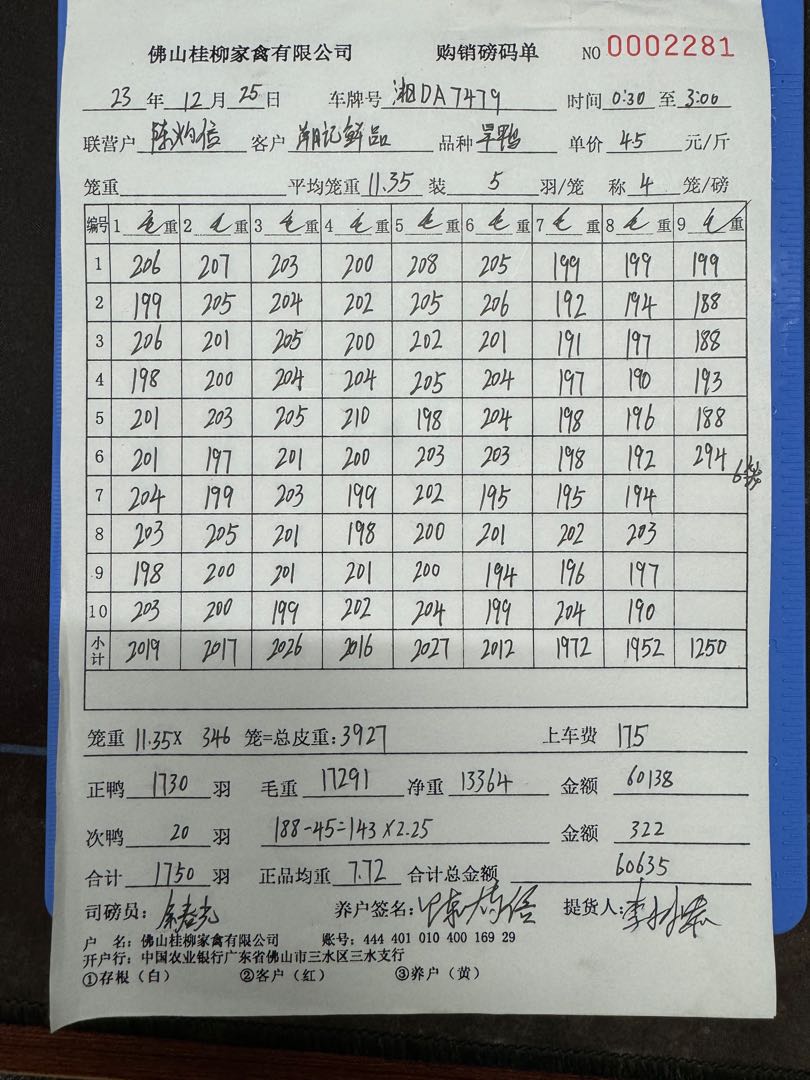 佛山桂柳家禽有限公司 购销磅码单 NO 0002281
23 年 12 月 25 日 车牌号 湘DA7479 时间 0:30 至 3:00
联营户 陈灼信 客户 翔记鲜品 品种 旱鸭 单价 45 元/斤
笼重 平均笼重 11.35 装 5 羽/笼 称 4 笼/磅
编号 1 毛重 2 毛重 3 毛重 4 毛重 5 毛重 6 毛重 7 毛重 8 毛重 9 毛重
1 206 207 203 200 208 205 199 199 199
2 199 205 204 202 205 206 192 194 188
3 206 201 205 200 202 201 191 197 188
4 198 200 204 204 205 204 197 190 193
5 201 203 205 210 198 204 198 196 188
6 201 197 201 200 203 203 198 192 294 6笼
7 204 199 203 199 202 195 195 194
8 203 205 201 198 200 201 202 203
9 198 200 201 201 200 194 196 197
10 203 200 199 202 204 199 204 190
小计 2019 2017 2026 2016 2027 2012 1972 1952 1250
笼重 11.35 X 346 笼=总皮重: 3927 上车费 175
正鸭 1730 羽 毛重 17291 净重 13364 金额 60138
次鸭 20 羽 188-45=143×2.25 金额 322
合计 1750 羽 正品均重 7.72 合计总金额 60635
司磅员: 养户签名: 陈灼信 提货人:
户 名: 佛山桂柳家禽有限公司 账号: 444 401 010 400 169 29
开户行: 中国农业银行广东省佛山市三水区三水支行
①存根(白) ②客户(红) ③养户(黄)